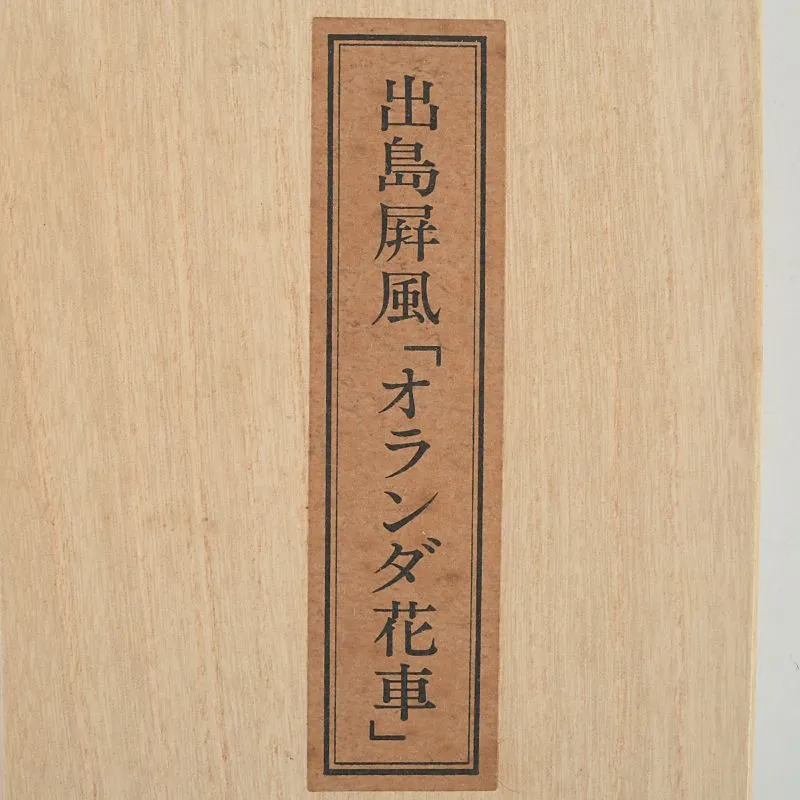 出島屏風「オランダ花車」